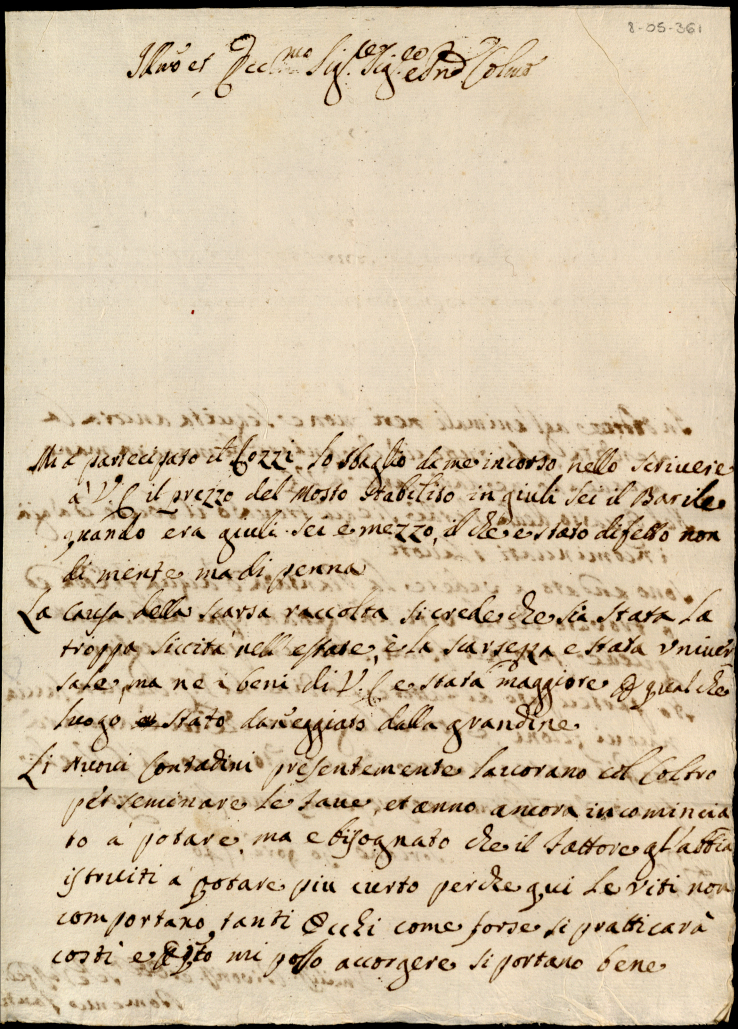 8-05-361
Illmo et Eccmo Sigr Sigr e Pne Colmo
Mi à partecipato il Cozzi lo sbaglio da me incorso nello scrivere
à V.E. il prezzo del Mosto stabilito in giuli sei il Barile
quando era giuli sei e mezzo, il che è stato difetto non
di mente ma di penna
La causa della scarsa raccolta si crede che sia stata la
troppa siccità nell'estate, è la scarsezza e stata vniuer
sale, ma ne i beni di V.E. e stata maggiore p qualche
luogo stato daneggiato dalla grandine
Li nuoui Contadini presentemente lauorano col Coltro
per seminare le faue, et anno ancora incomincia
to à potare, ma e bisognato che il Fattore gl'abbia
istruiti à potare piu curto perche qui le viti non
comportano tanti Occhi come forse si pratticarà
costì e p qto mi posso accorgere si portano bene